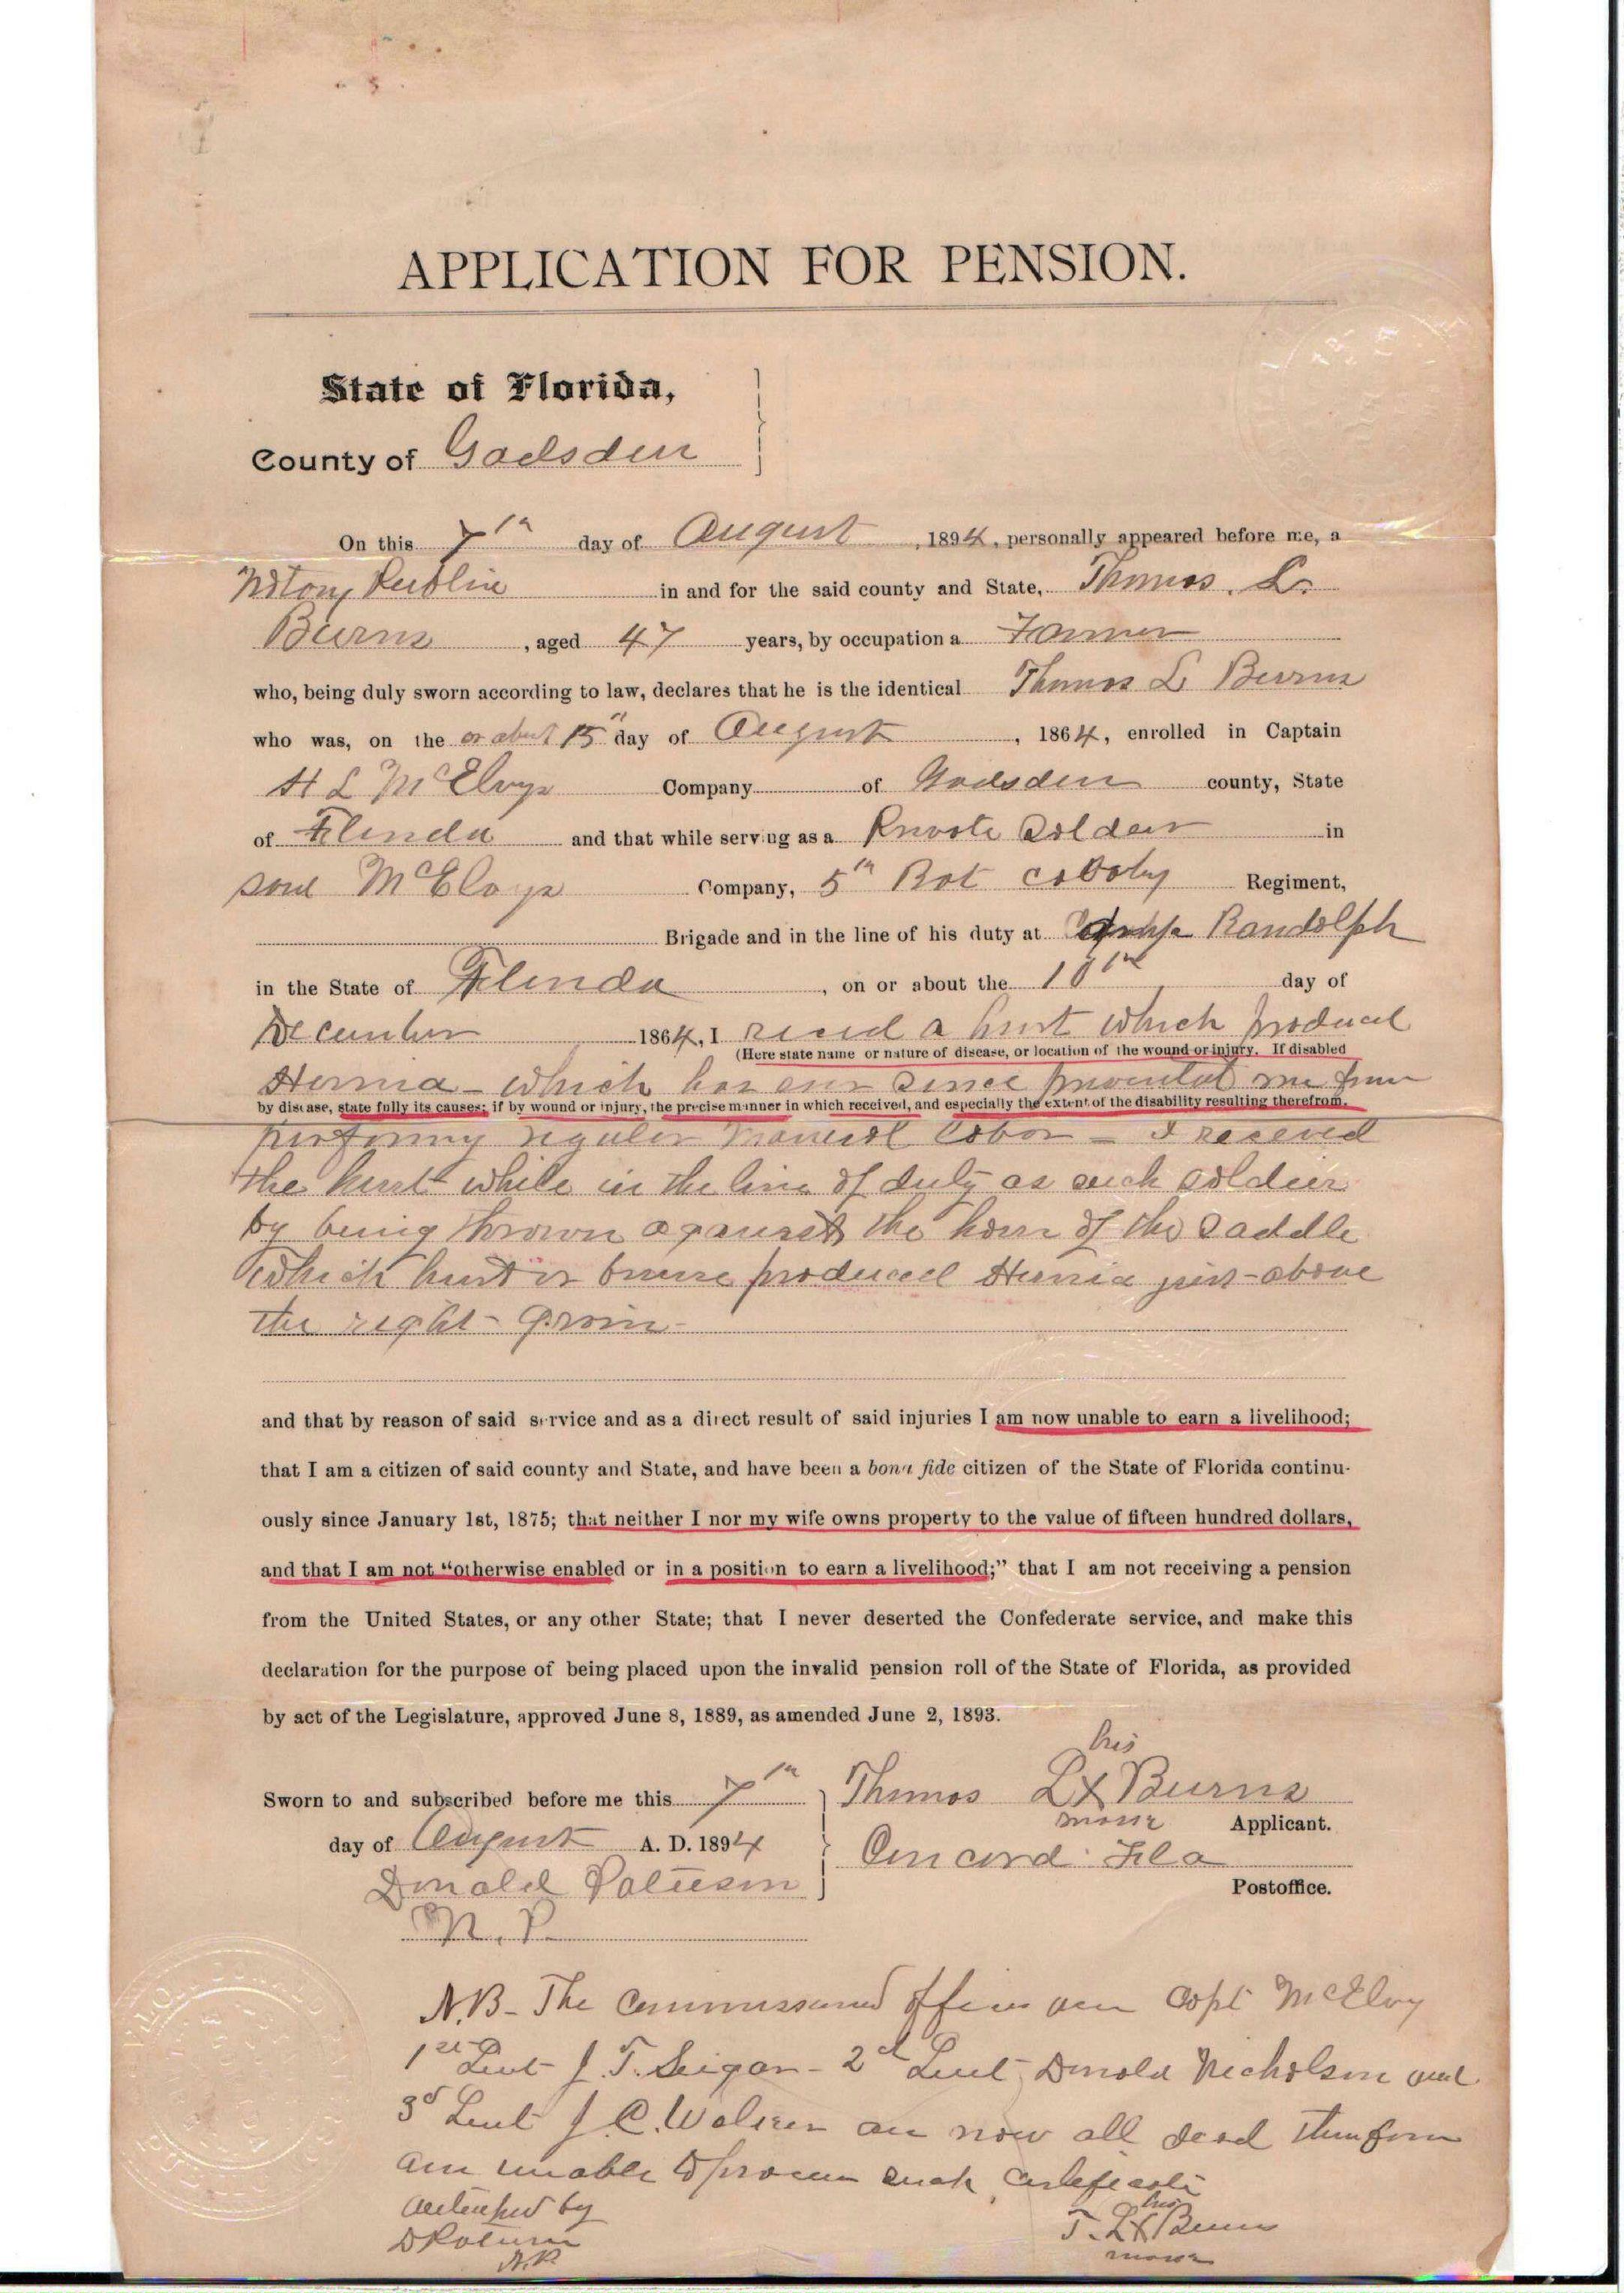 APPLICATION FOR PENSION.
State of Florida,
County of Gadsden
On this 7th day of August, 1894, personally appeared before me, a
Notary Public in and for the said county and State, Thomas. L.
Burns, aged 47 years, by occupation a Farmer
who, being duly sworn according to law, declares that he is the identical Thomas L Burns
who was, on the or about 15" day of August, 1864, enrolled in Captain
H L McElvys Company of Gadsden county, State
of Florida and that while serving as a Private Soldier in
said McElvys Company, 5th Bat Regiment,
Brigade and in the line of his duty at Camp Randolph
in the State of Florida, on or about the 10th day of
December 1864, I recd a hurt which produced
(Here state name or nature of disease, or location of the wound or injury. If disabled
Hernia - which has ever since prevented me from
by disease, state fully its causes; if by wound or injury, the precise manner in which received, and especially the extent of the disability resulting therefrom.
performing regular manual labor - I received
the hurt while in the line of duty as such soldier
by being thrown against the horn of the saddle
which hurt or bruise produced Hernia just above
the right groin
and that by reason of said service and as a direct result of said injuries I am now unable to earn a livelihood;
that I am a citizen of said county and State, and have been a bona fide citizen of the State of Florida continu-
ously since January 1st, 1875; that neither I nor my wife owns property to the value of fifteen hundred dollars,
and that I am not "otherwise enabled or in a position to earn a livelihood;" that I am not receiving a pension
from the United States, or any other State; that I never deserted the Confederate service, and make this
declaration for the purpose of being placed upon the invalid pension roll of the State of Florida, as provided
by act of the Legislature, approved June 8, 1889, as amended June 2, 1893.
his
Sworn to and subscribed before me this 7th Thomas L X Burns
mark Applicant.
day of August A. D. 1894 Concord Fla
Donald Postoffice.
N. P.
N.B- The Commissioned officers Capt McElvy
1st Lieut J. T. - 2d Lieut Donald Nicholson and
3d Lieut J. C. are now all dead therefore
am unable to procure such certificate
his
by T. L X Burns
D mark
N.P.